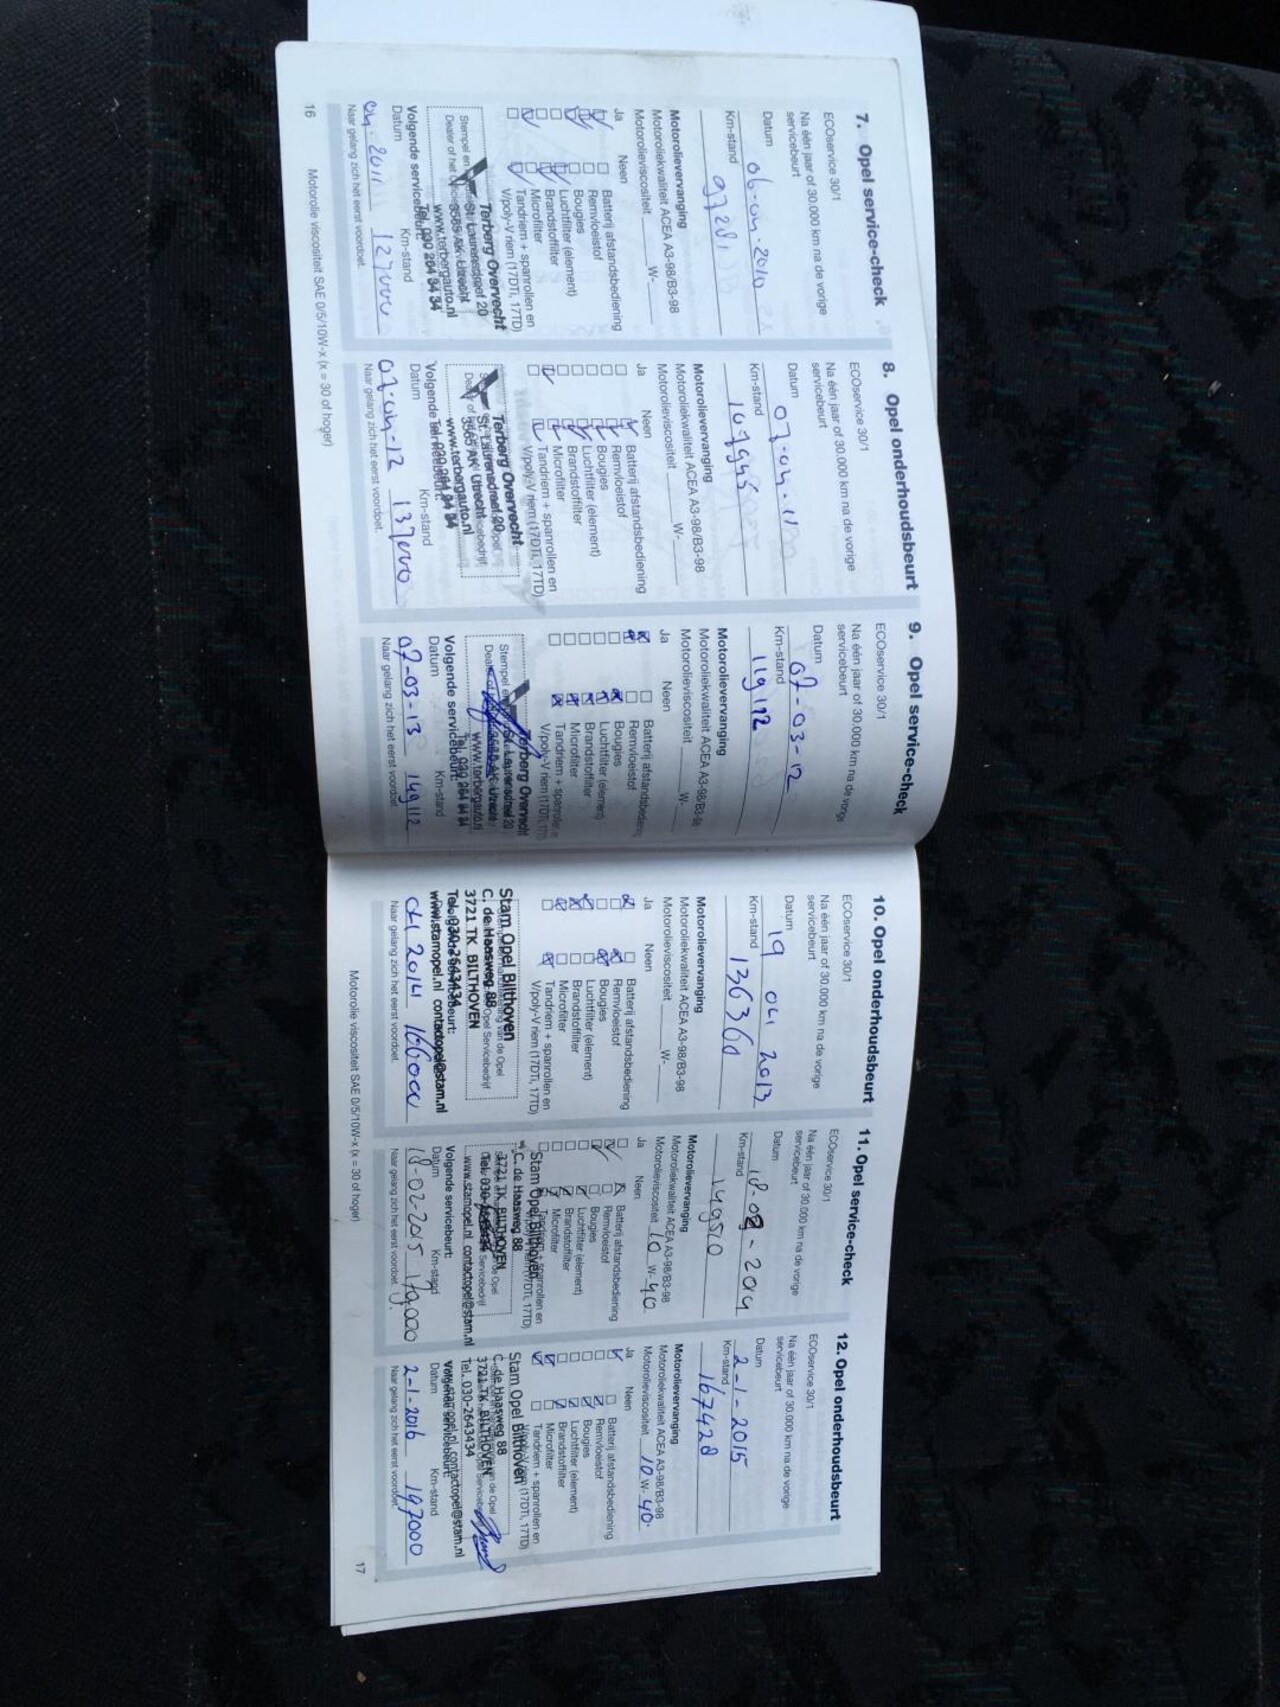 7. Opel service-check
ECOservice 30/1
Na één jaar of 30.000 km na de vorige
servicebeurt
Datum 06-04-2010
Km-stand 97281
Motorolievervanging
Motoroliekwaliteit ACEA A3-98/B3-98
Motorolieviscositeit W-
Ja Neen
Batterij afstandsbediening
Remvloeistof
Bougies
Luchtfilter (element)
Brandstoffilter
Microfilter
Tandriem + spanrollen en
V/poly-V riem (17DTi, 17TD)
Terberg Overvecht
St. Laurensdreef 20
3565 AK Utrecht
www.terbergauto.nl
Tel. 030 264 34 34
Stempel en
Dealer of het
Volgende servicebeurt:
Datum Km-stand
04-2011 127000
Naar gelang zich het eerst voordoet.
16
Motorolie viscositeit SAE 0/5/10W-x (x = 30 of hoger)
8. Opel onderhoudsbeurt
ECOservice 30/1
Na één jaar of 30.000 km na de vorige
servicebeurt
Datum 07-04-11
Km-stand 109945
Motorolievervanging
Motoroliekwaliteit ACEA A3-98/B3-98
Motorolieviscositeit W-
Ja Neen
Batterij afstandsbediening
Remvloeistof
Bougies
Luchtfilter (element)
Brandstoffilter
Microfilter
Tandriem + spanrollen en
V/poly-V riem (17DTi, 17TD)
Terberg Overvecht
St. Laurensdreef 20
3565 AK Utrecht
www.terbergauto.nl
Volgende
Datum Km-stand
07-04-12 137000
Naar gelang zich het eerst voordoet.
9. Opel service-check
ECOservice 30/1
Na één jaar of 30.000 km na de vorige
servicebeurt
Datum 07-03-12
Km-stand 119112
Motorolievervanging
Motoroliekwaliteit ACEA A3-98/B3-98
Motorolieviscositeit W-
Ja Neen
Batterij afstandsbediening
Remvloeistof
Bougies
Luchtfilter (element)
Brandstoffilter
Microfilter
Tandriem + spanrollen
V/poly-V riem (17DTi, 17TD)
Terberg Overvecht
St. Laurensdreef 20
www.terbergauto.nl
Tel. 030 264 34 34
Stempel
Volgende servicebeurt:
Datum Km-stand
07-03-13 149112
Naar gelang zich het eerst voordoet
10. Opel onderhoudsbeurt
ECOservice 30/1
Na één jaar of 30.000 km na de vorige
servicebeurt
Datum 19 04 2013
Km-stand 136360
Motorolievervanging
Motoroliekwaliteit ACEA A3-98/B3-98
Motorolieviscositeit W-
Ja Neen
Batterij afstandsbediening
Remvloeistof
Bougies
Luchtfilter (element)
Brandstoffilter
Microfilter
Tandriem + spanrollen en
V/poly-V riem (17DTi, 17TD)
Stam Opel Bilthoven
C. de Haasweg 88
3721 TK BILTHOVEN
Tel. 030-2643434
www.stamopel.nl contactopel@stam.nl
04 2014 166000
Naar gelang zich het eerst voordoet.
11. Opel service-check
ECOservice 30/1
Na één jaar of 30.000 km na de vorige
servicebeurt
Datum 18-02-2014
Km-stand 149510
Motorolievervanging
Motoroliekwaliteit ACEA A3-98/B3-98
Motorolieviscositeit 10 W-40
Ja Neen
Batterij afstandsbediening
Remvloeistof
Bougies
Luchtfilter (element)
Brandstoffilter
Microfilter
Tandriem + spanrollen en
Stam Opel Bilthoven
C. de Haasweg 88
3721 TK BILTHOVEN
www.stamopel.nl contactopel@stam.nl
Volgende servicebeurt:
Datum Km-stand
18-02-2015 179000
Naar gelang zich het eerst voordoet.
12. Opel onderhoudsbeurt
ECOservice 30/1
Na één jaar of 30.000 km na de vorige
servicebeurt
Datum 2-1-2015
Km-stand 167428
Motorolievervanging
Motoroliekwaliteit ACEA A3-98/B3-98
Motorolieviscositeit 10 W-40.
Ja Neen
Batterij afstandsbediening
Remvloeistof
Bougies
Luchtfilter (element)
Brandstoffilter
Microfilter
Tandriem + spanrollen en
V/poly-V riem (17DTi, 17TD)
Stam Opel Bilthoven
C. de Haasweg 88
3721 TK BILTHOVEN
Tel. 030-2643434
www.stamopel.nl contactopel@stam.nl
Datum Km-stand
2-1-2016 197000
Naar gelang zich het eerst voordoet.
Motorolie viscositeit SAE 0/5/10W-x (x = 30 of hoger)
17